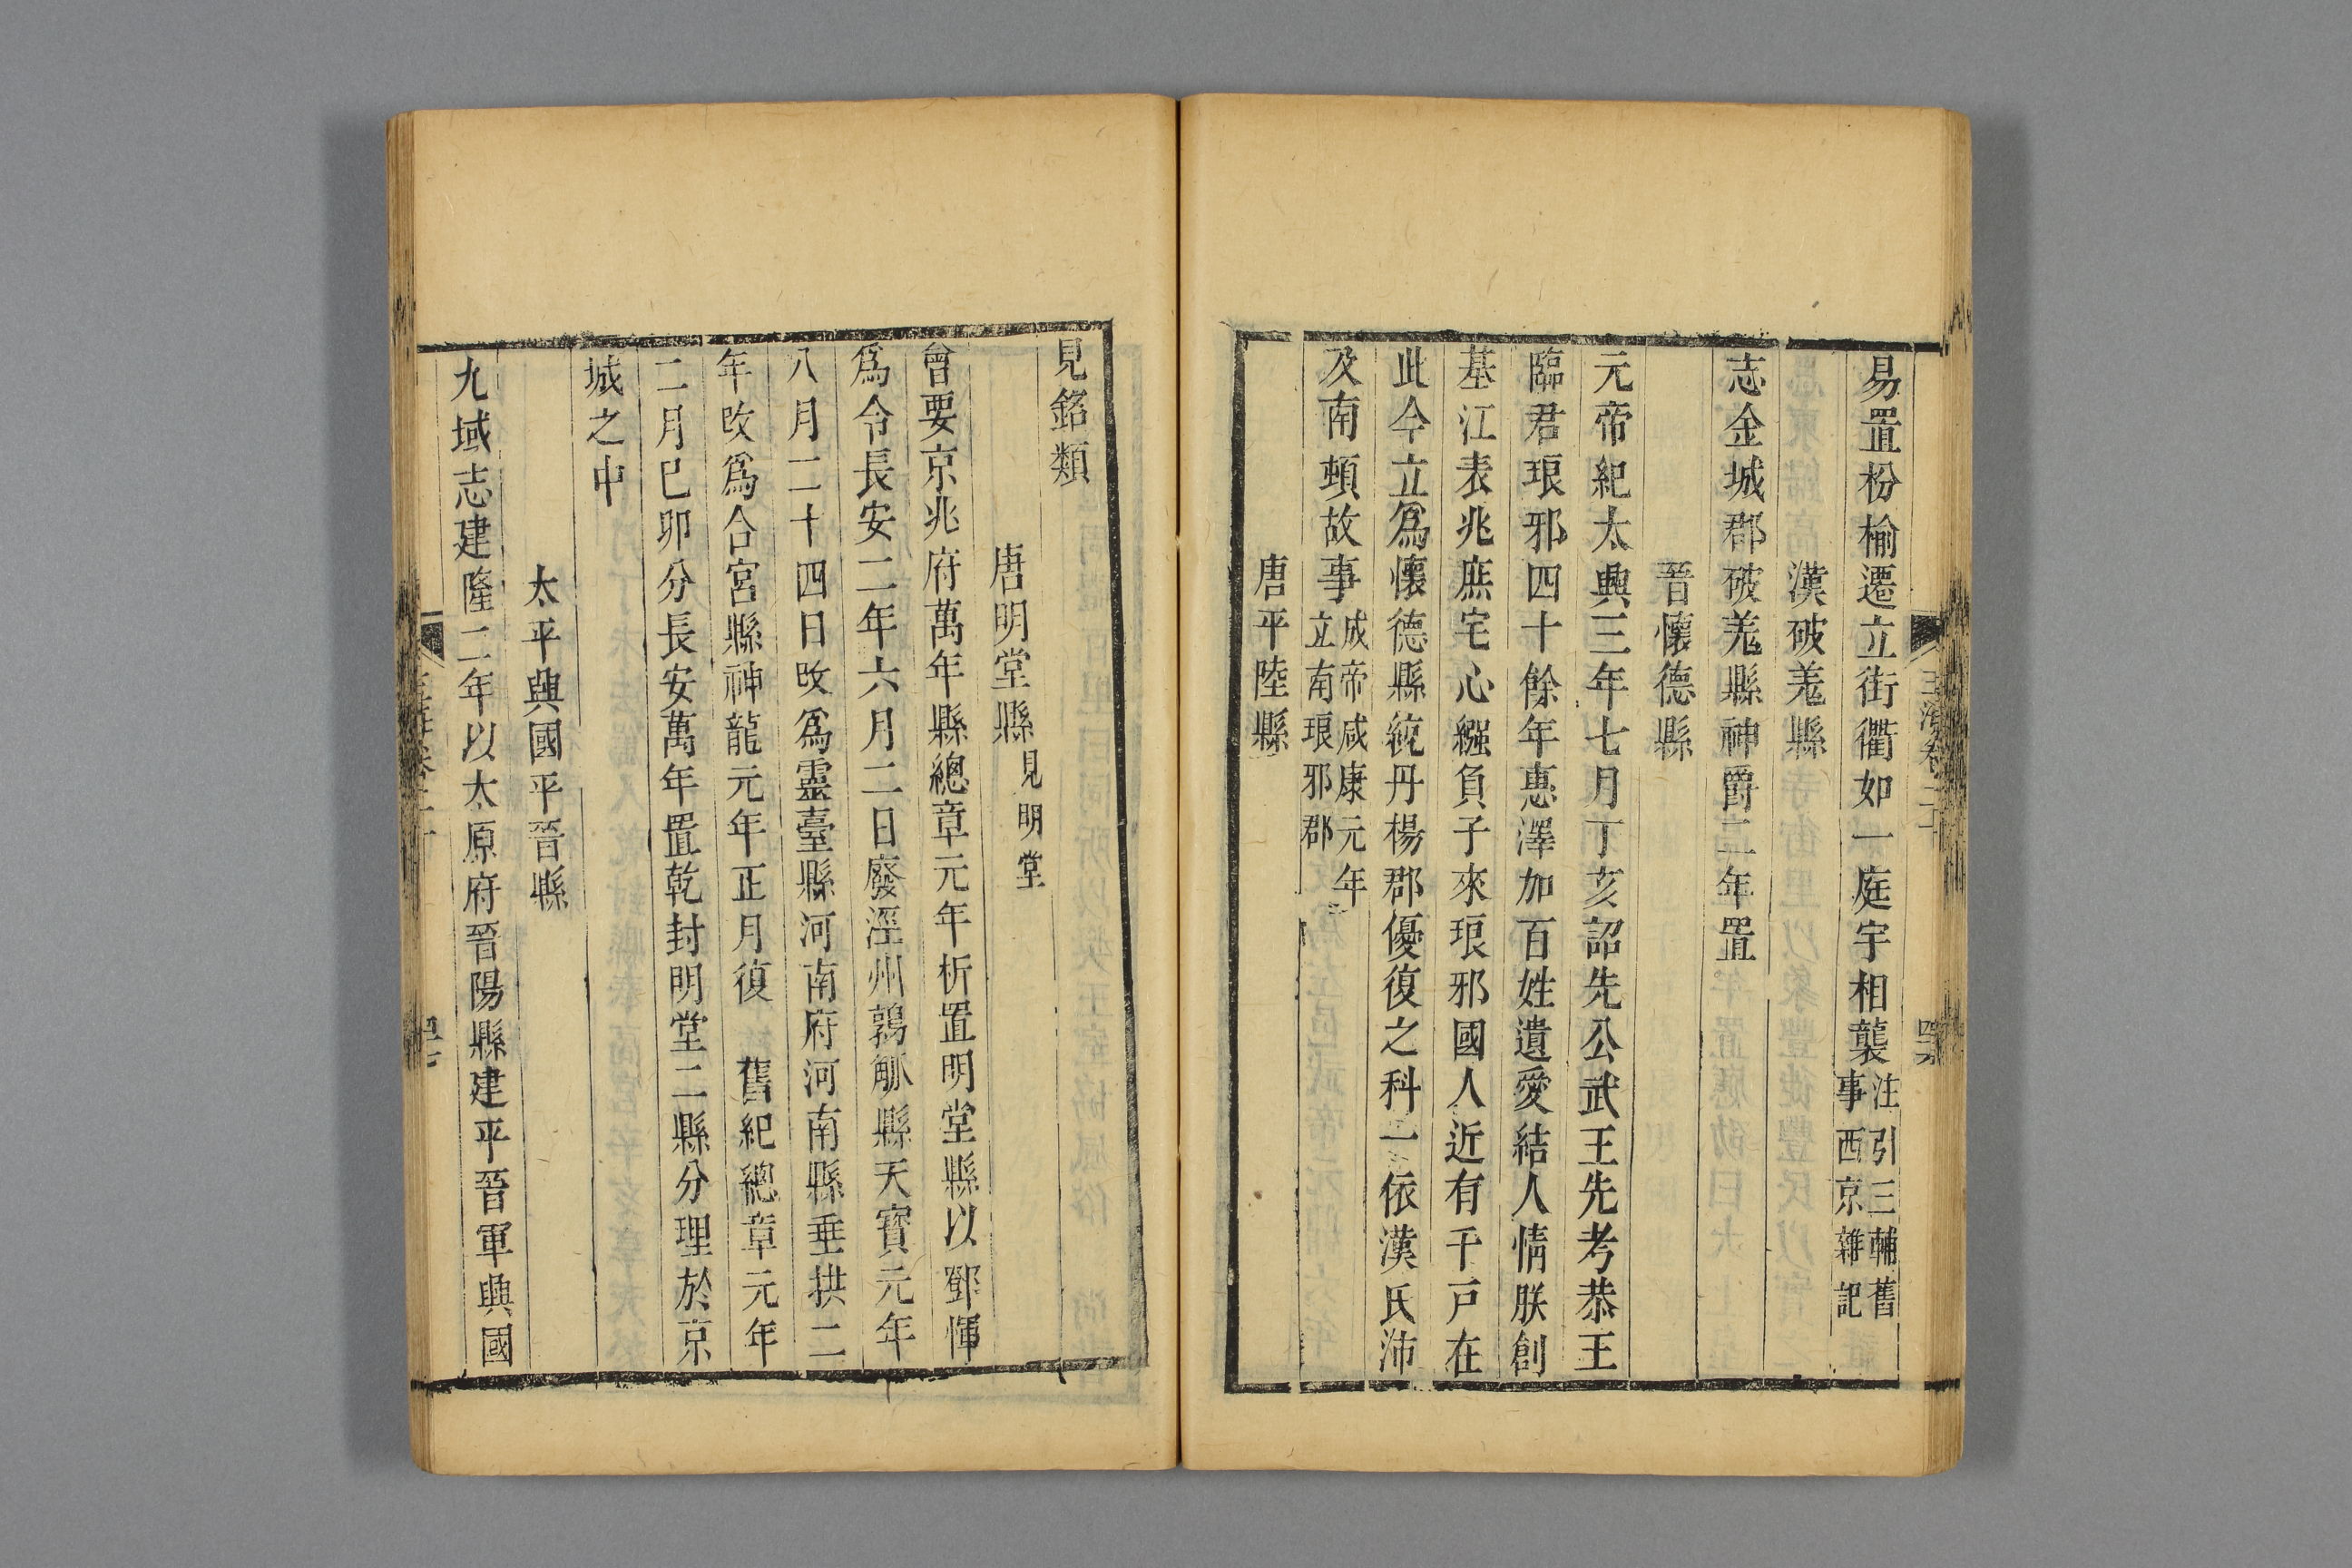 易置枌榆遷立街衢如一庭宇相襲注引三輔舊事西京雜記
漢破羌縣
志金城郡破羌縣神爵二年置
晉懷德縣
元帝紀太興三年七月丁亥詔先公武王先考恭王
臨君琅邪四十餘年惠澤加百姓遺愛結人情朕創
基江表兆庶宅心繈負子來琅邪國人近有千戸在
此今立爲懷德縣統丹楊郡優復之科一依漢氏沛
及南頓故事成帝咸康元年立南琅邪郡
唐平陸縣
見銘類
唐明堂縣見明堂
會要京兆府萬年縣總章元年析置明堂縣以鄧惲
爲令長安二年六月二日廢涇州鶉觚縣天寶元年
八月二十四日改爲靈臺縣河南府河南縣垂拱二
年改爲合宮縣神龍元年正月復 舊紀總章元年
二月巳卯分長安萬年置乾封明堂二縣分理於京
城之中
太平興國平晉縣
九域志建隆二年以太原府晉陽縣建平晉軍興國